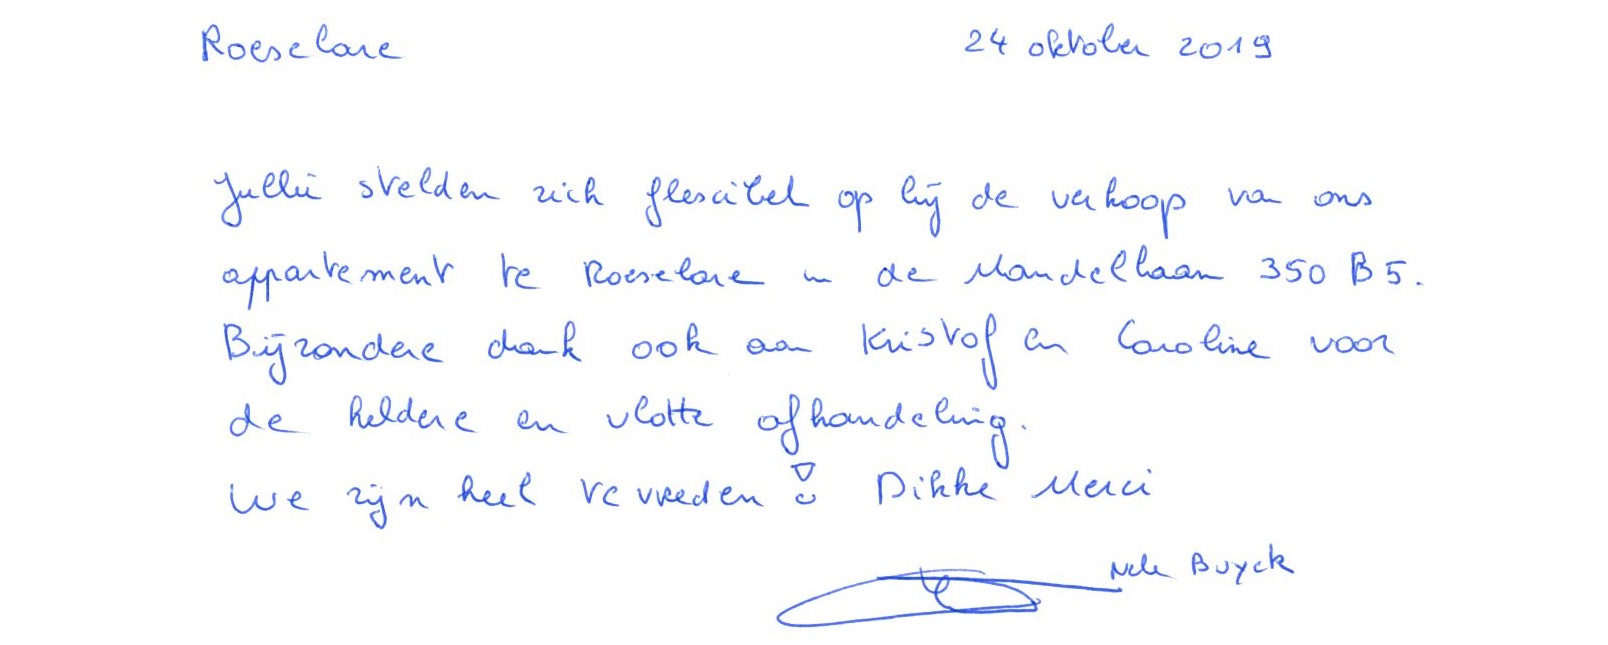 Roeselare 24 oktober 2019
Jullie stelden zich flexibel op bij de verkoop van ons
appartement te Roeselare in de Mandellaan 350 B5.
Bijzondere dank ook aan Kristof en Caroline voor
de heldere en vlotte afhandeling.
We zijn heel tevreden! Dikke Merci
Nele Buyck